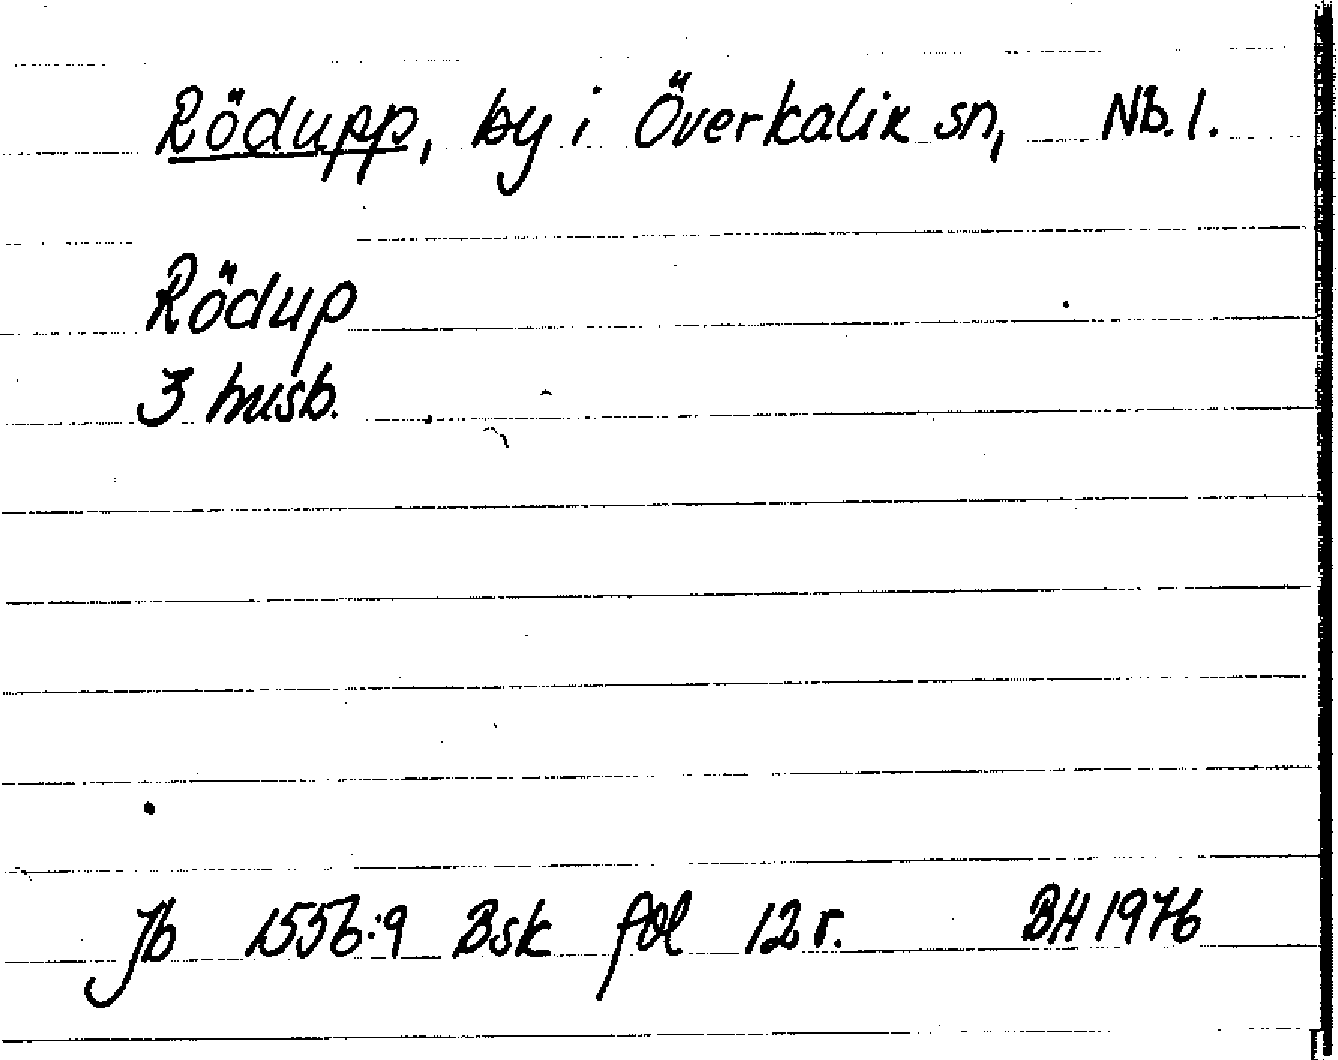 Rödupp, by i Överkalix sn, Nb. l.
Rödup
3 husb.
Jb 1556:9 Bsk fol 12 r. BH 1976